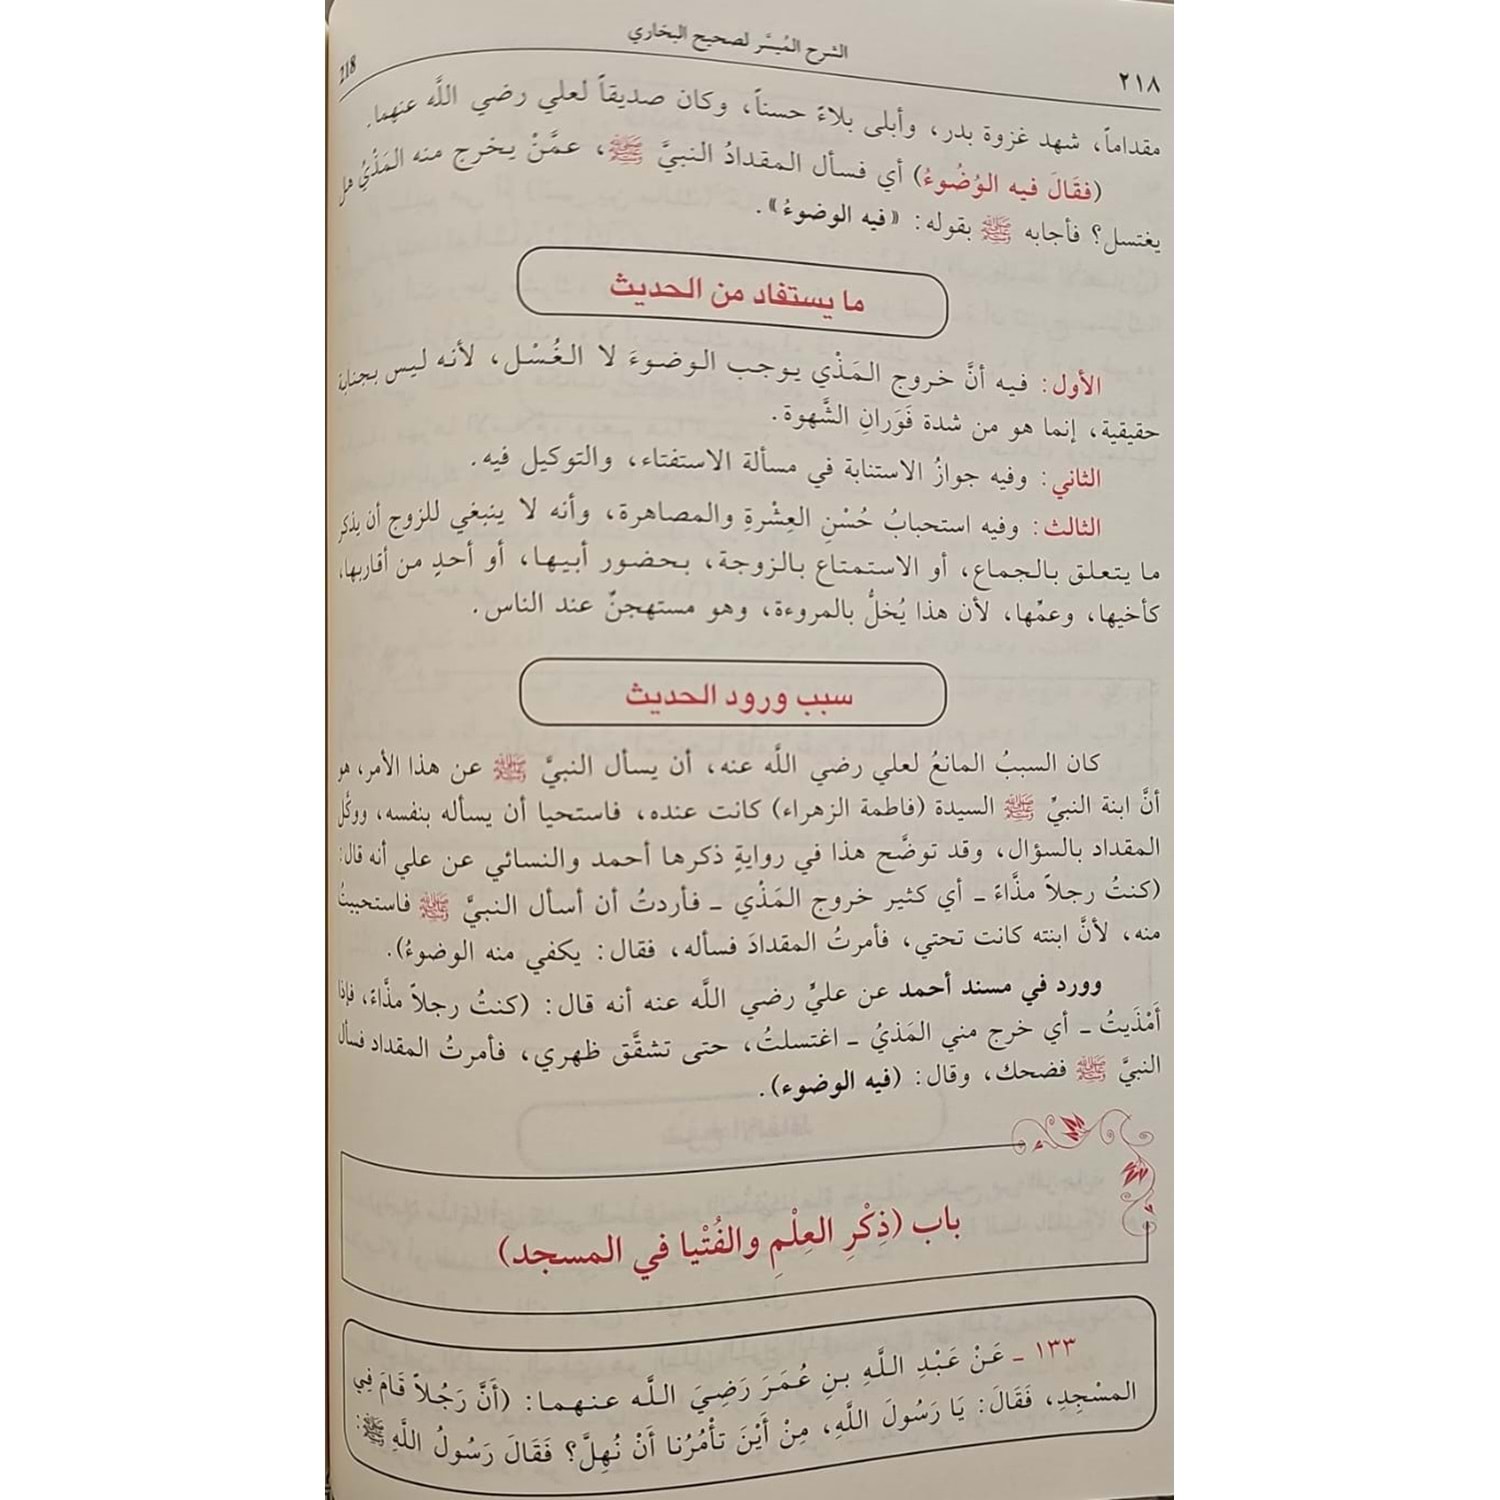 الشرح المُيسَّر لصحيح البخاري
٢١٨
218
مقداماً، شهد غزوة بدر، وأبلى بلاءً حسناً، وكان صديقاً لعلي رضي اللَّه عنهما.
(فقَالَ فيه الوُضُوءُ) أي فسأل المقدادُ النبيَّ ﷺ، عمَّنْ يخرج منه المَذْيُ هل
يغتسل؟ فأجابه ﷺ بقوله: «فيه الوضوءُ».
ما يستفاد من الحديث
الأول: فيه أنَّ خروج المَذْي يوجب الوضوءَ لا الغُسْل، لأنه ليس بجنابة
حقيقية، إنما هو من شدة فَوَرانِ الشَّهوة.
الثاني: وفيه جوازُ الاستنابة في مسألة الاستفتاء، والتوكيل فيه.
الثالث: وفيه استحبابُ حُسْنِ العِشْرةِ والمصاهرة، وأنه لا ينبغي للزوج أن يذكر
ما يتعلق بالجماع، أو الاستمتاع بالزوجة، بحضور أبيها، أو أحدٍ من أقاربها،
كأخيها، وعمِّها، لأن هذا يُخلُّ بالمروءة، وهو مستهجنٌ عند الناس.
سبب ورود الحديث
كان السببُ المانعُ لعلي رضي اللَّه عنه، أن يسأل النبيَّ ﷺ عن هذا الأمر، هو
أنَّ ابنة النبيِّ ﷺ السيدة (فاطمة الزهراء) كانت عنده، فاستحيا أن يسأله بنفسه، ووكَّل
المقداد بالسؤال، وقد توضَّح هذا في روايةٍ ذكرها أحمد والنسائي عن علي أنه قال:
(كنتُ رجلاً مذَّاءً ـ أي كثير خروج المَذْي ـ فأردتُ أن أسأل النبيَّ ﷺ فاستحييتُ
منه، لأنَّ ابنته كانت تحتي، فأمرتُ المقدادَ فسأله، فقال: يكفي منه الوضوءُ).
وورد في مسند أحمد عن عليٍّ رضي اللَّه عنه أنه قال: (كنتُ رجلاً مذَّاءً، فإذا
أَمْذَيتُ ـ أي خرج مني المَذيُ ـ اغتسلتُ، حتى تشقَّق ظهري، فأمرتُ المقداد فسأل
النبيَّ ﷺ فضحك، وقال: (فيه الوضوء).
باب (ذِكْرِ العِلْمِ والفُتْيا في المسجد)
١٣٣ ـ عَنْ عَبْدِ اللَّهِ بنِ عُمَرَ رَضِيَ اللَّه عنهما: (أَنَّ رَجُلاً قَامَ فِي
المسْجِدِ، فَقَالَ: يَا رَسُولَ اللَّهِ، مِنْ أَيْنَ تأْمُرُنا أَنْ نُهِلَّ؟ فَقَالَ رَسُولُ اللَّهِ ﷺ: